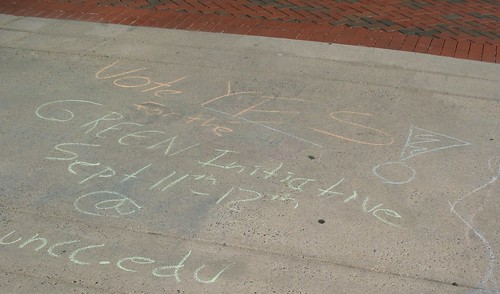 Vote YES!
for the
GREEN Initiative
Sept 11th-12th
@
uncc.edu